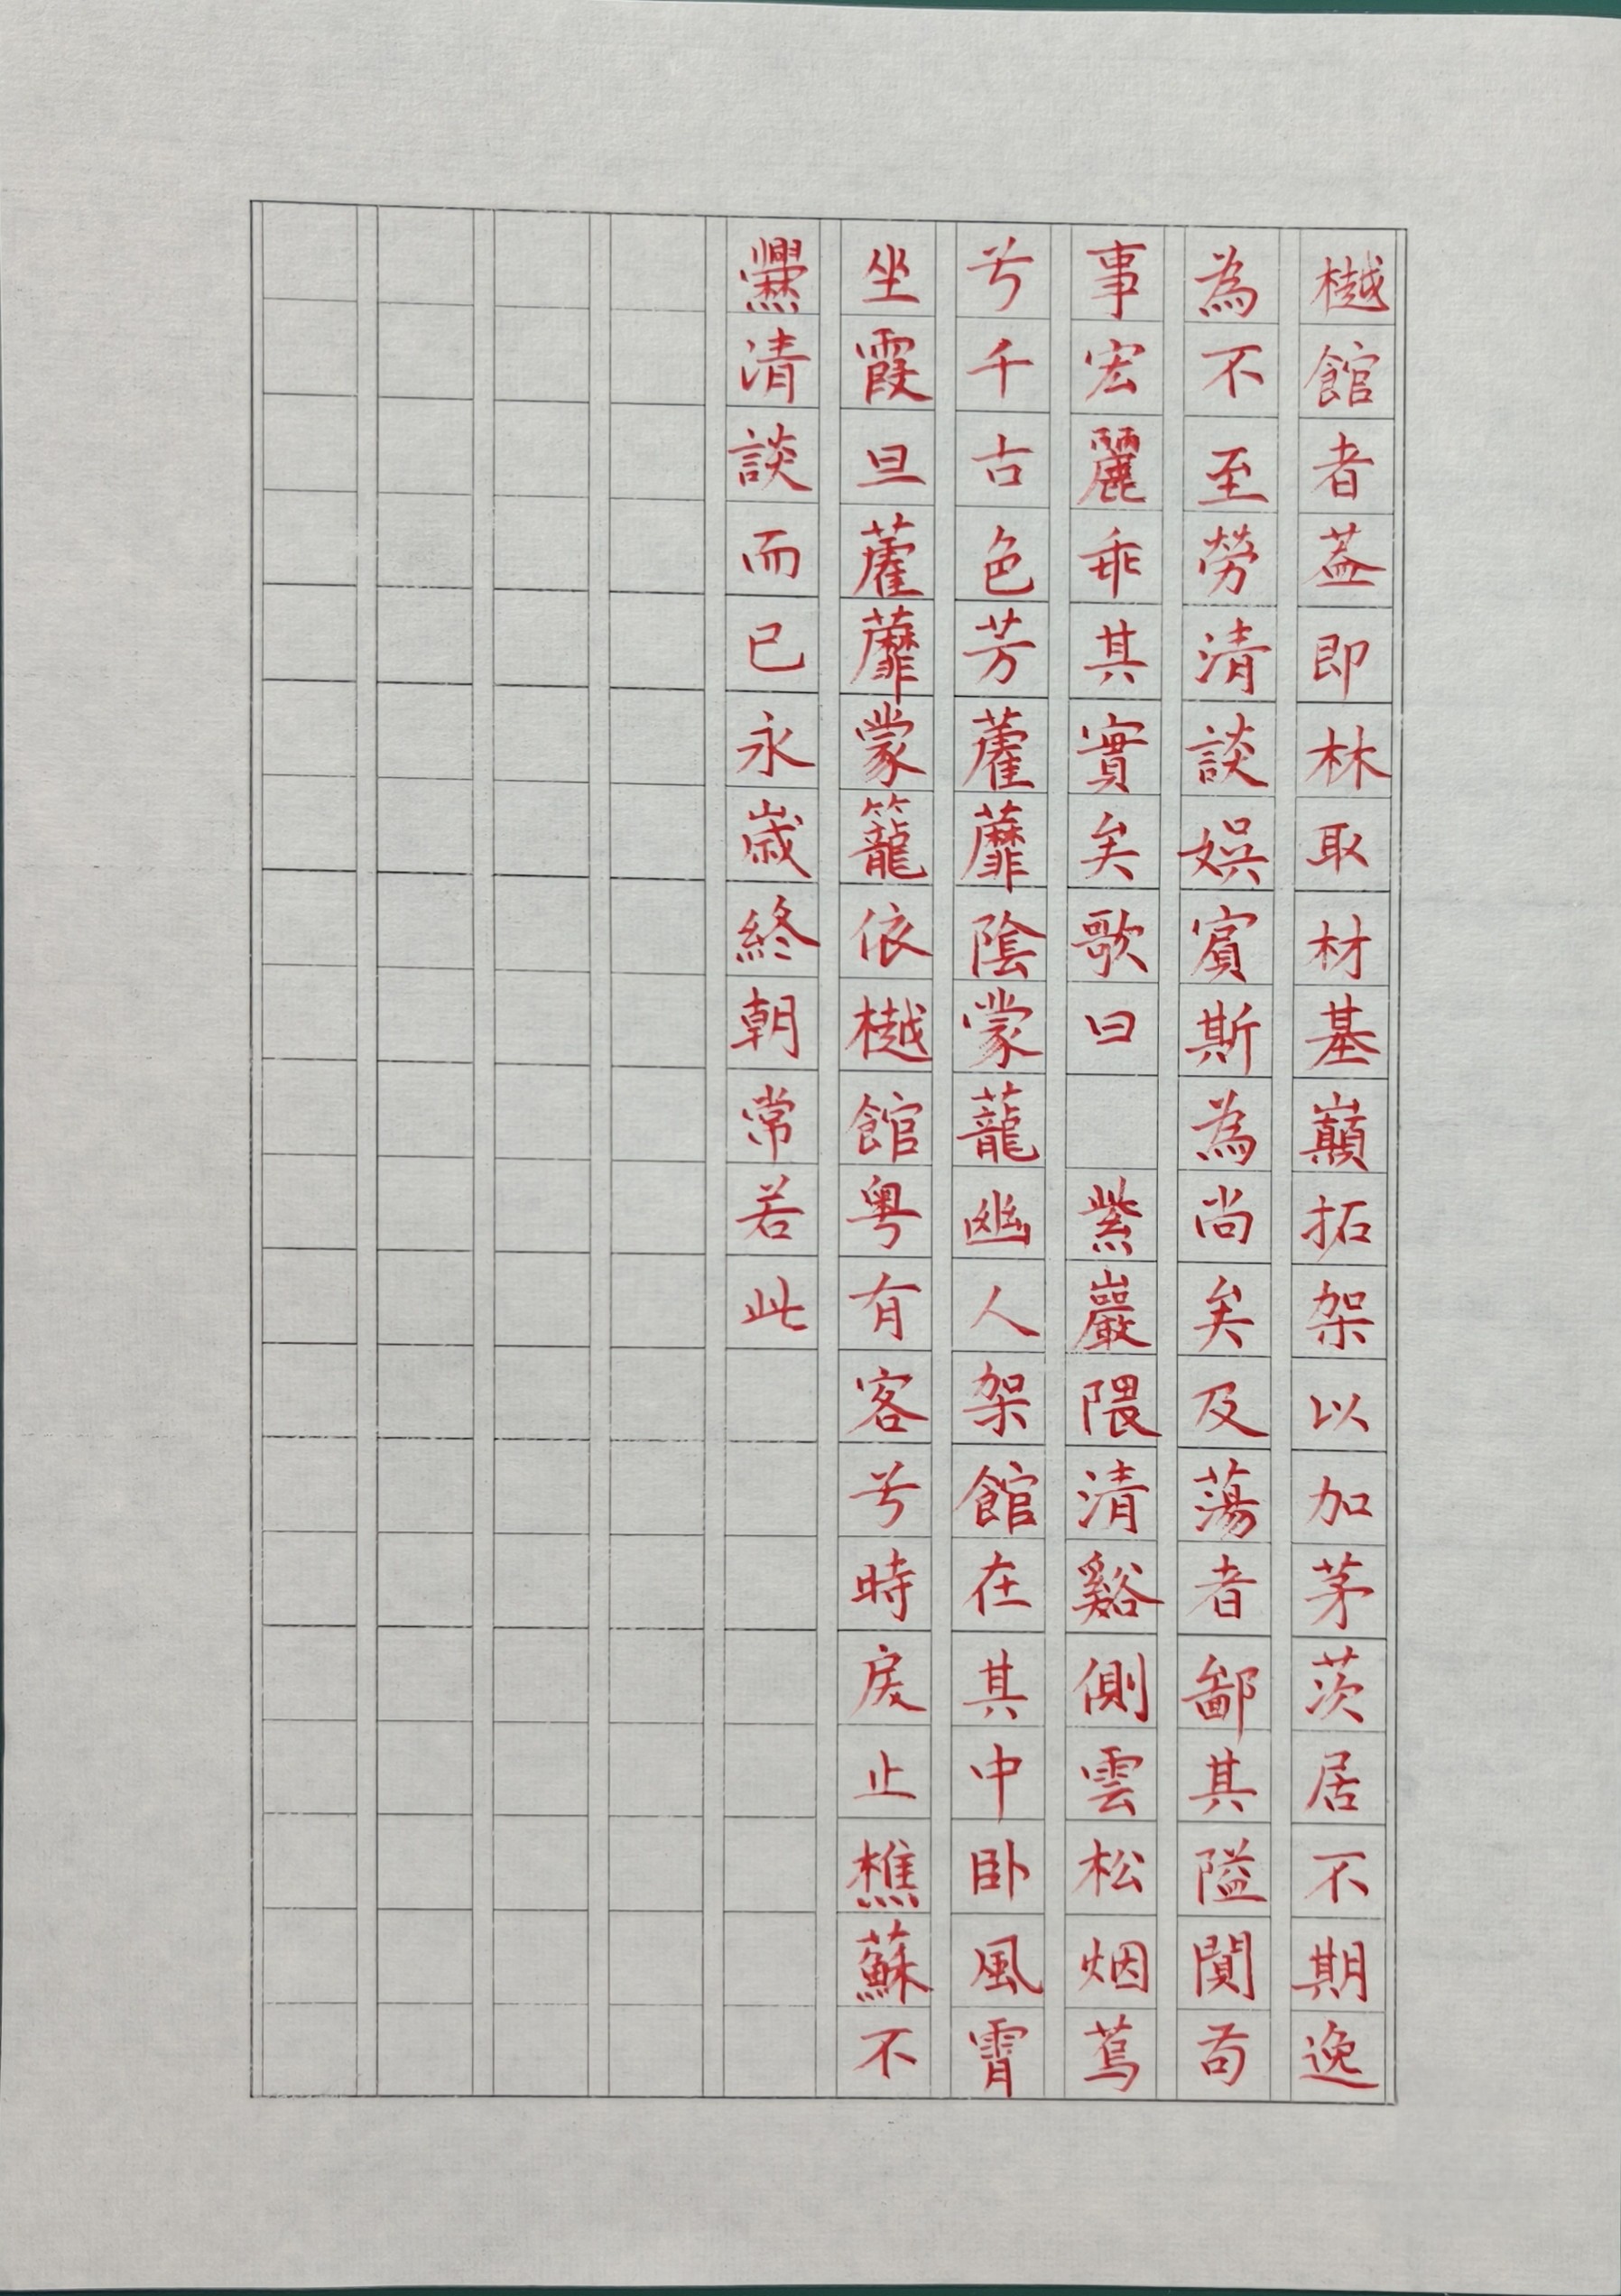 樾館者葢即林取材基巔拓架以加茅茨居不期逸
為不至勞清談娛賓斯為尚矣及蕩者鄙其隘閴苟
事宏麗乖其實矣歌曰 紫巖隈清谿側雲松烟蔦
兮千古色芳藿蘼陰蒙蘢幽人架館在其中卧風霄
坐霞旦藿蘼蒙籠依樾館粤有客兮時戾止樵蘇不
爨清談而已永歳終朝常若此